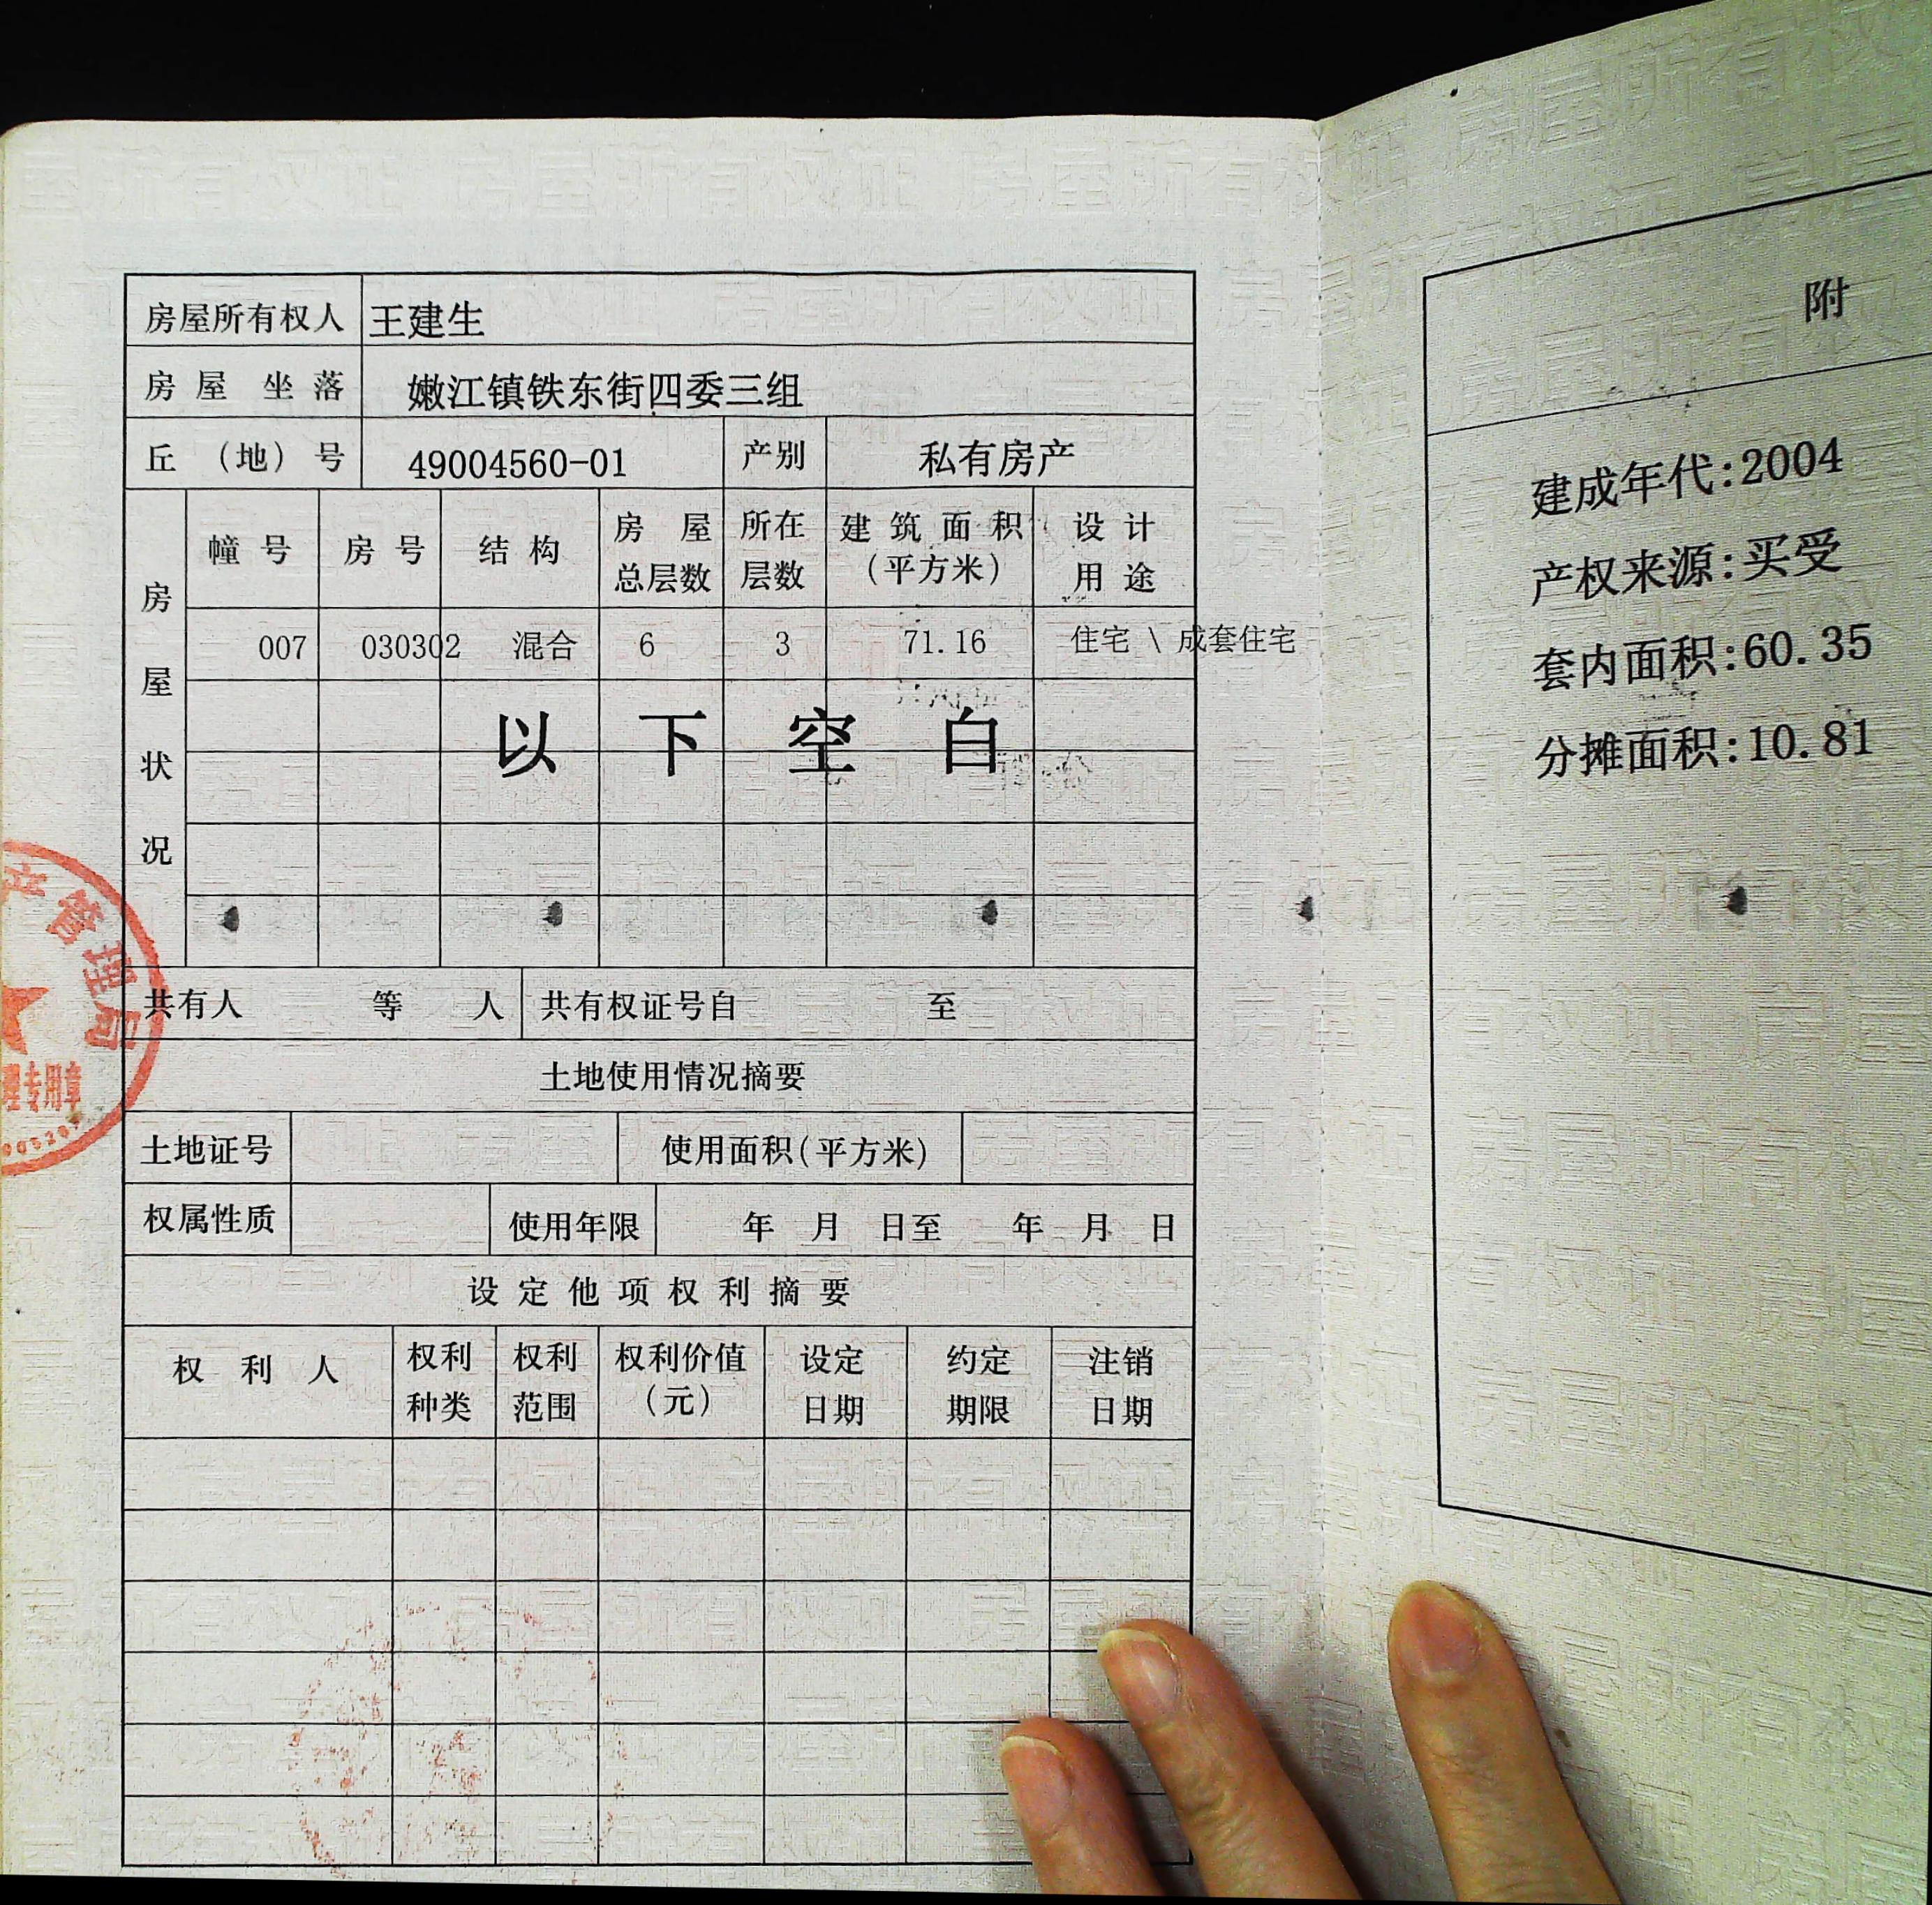 房屋所有权人 王建生
房屋坐落 嫩江镇铁东街四委三组
丘（地）号 49004560-01 产别 私有房产
房屋状况
幢号 房号 结构 房屋总层数 所在层数 建筑面积（平方米） 设计用途
007 030302 混合 6 3 71.16 住宅 \ 成套住宅
以下空白
共有人 等 人 共有权证号自 至
土地使用情况摘要
土地证号 使用面积(平方米)
权属性质 使用年限 年 月 日至 年 月 日
设定他项权利摘要
权利人 权利种类 权利范围 权利价值（元） 设定日期 约定期限 注销日期
产管理局
理专用章
附
建成年代:2004
产权来源:买受
套内面积:60.35
分摊面积:10.81
房屋所有权证